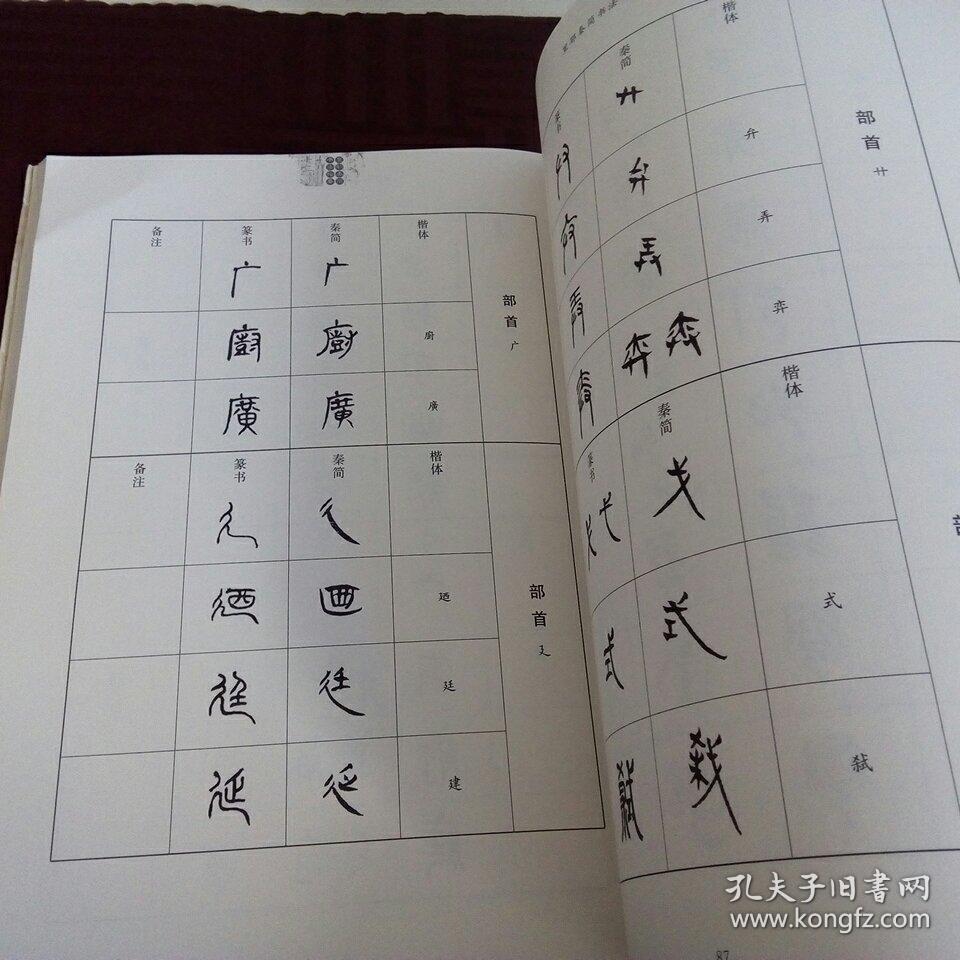 备注 篆书 秦简 楷体
广 广 部首 广
廚 廚 廚
廣 廣 廣
备注 篆书 秦简 楷体
廴 廴 部首 廴
廼 廼 廼
廷 廷 廷
延 延 建
里耶秦简书法
篆书 秦简 楷体
廾 部首 廾
弁 弁
弄 弄
弈 弈 弈
篆书 秦简 楷体
弋 弋
式 式 式
弑
87
孔夫子旧書网
www.kongfz.com